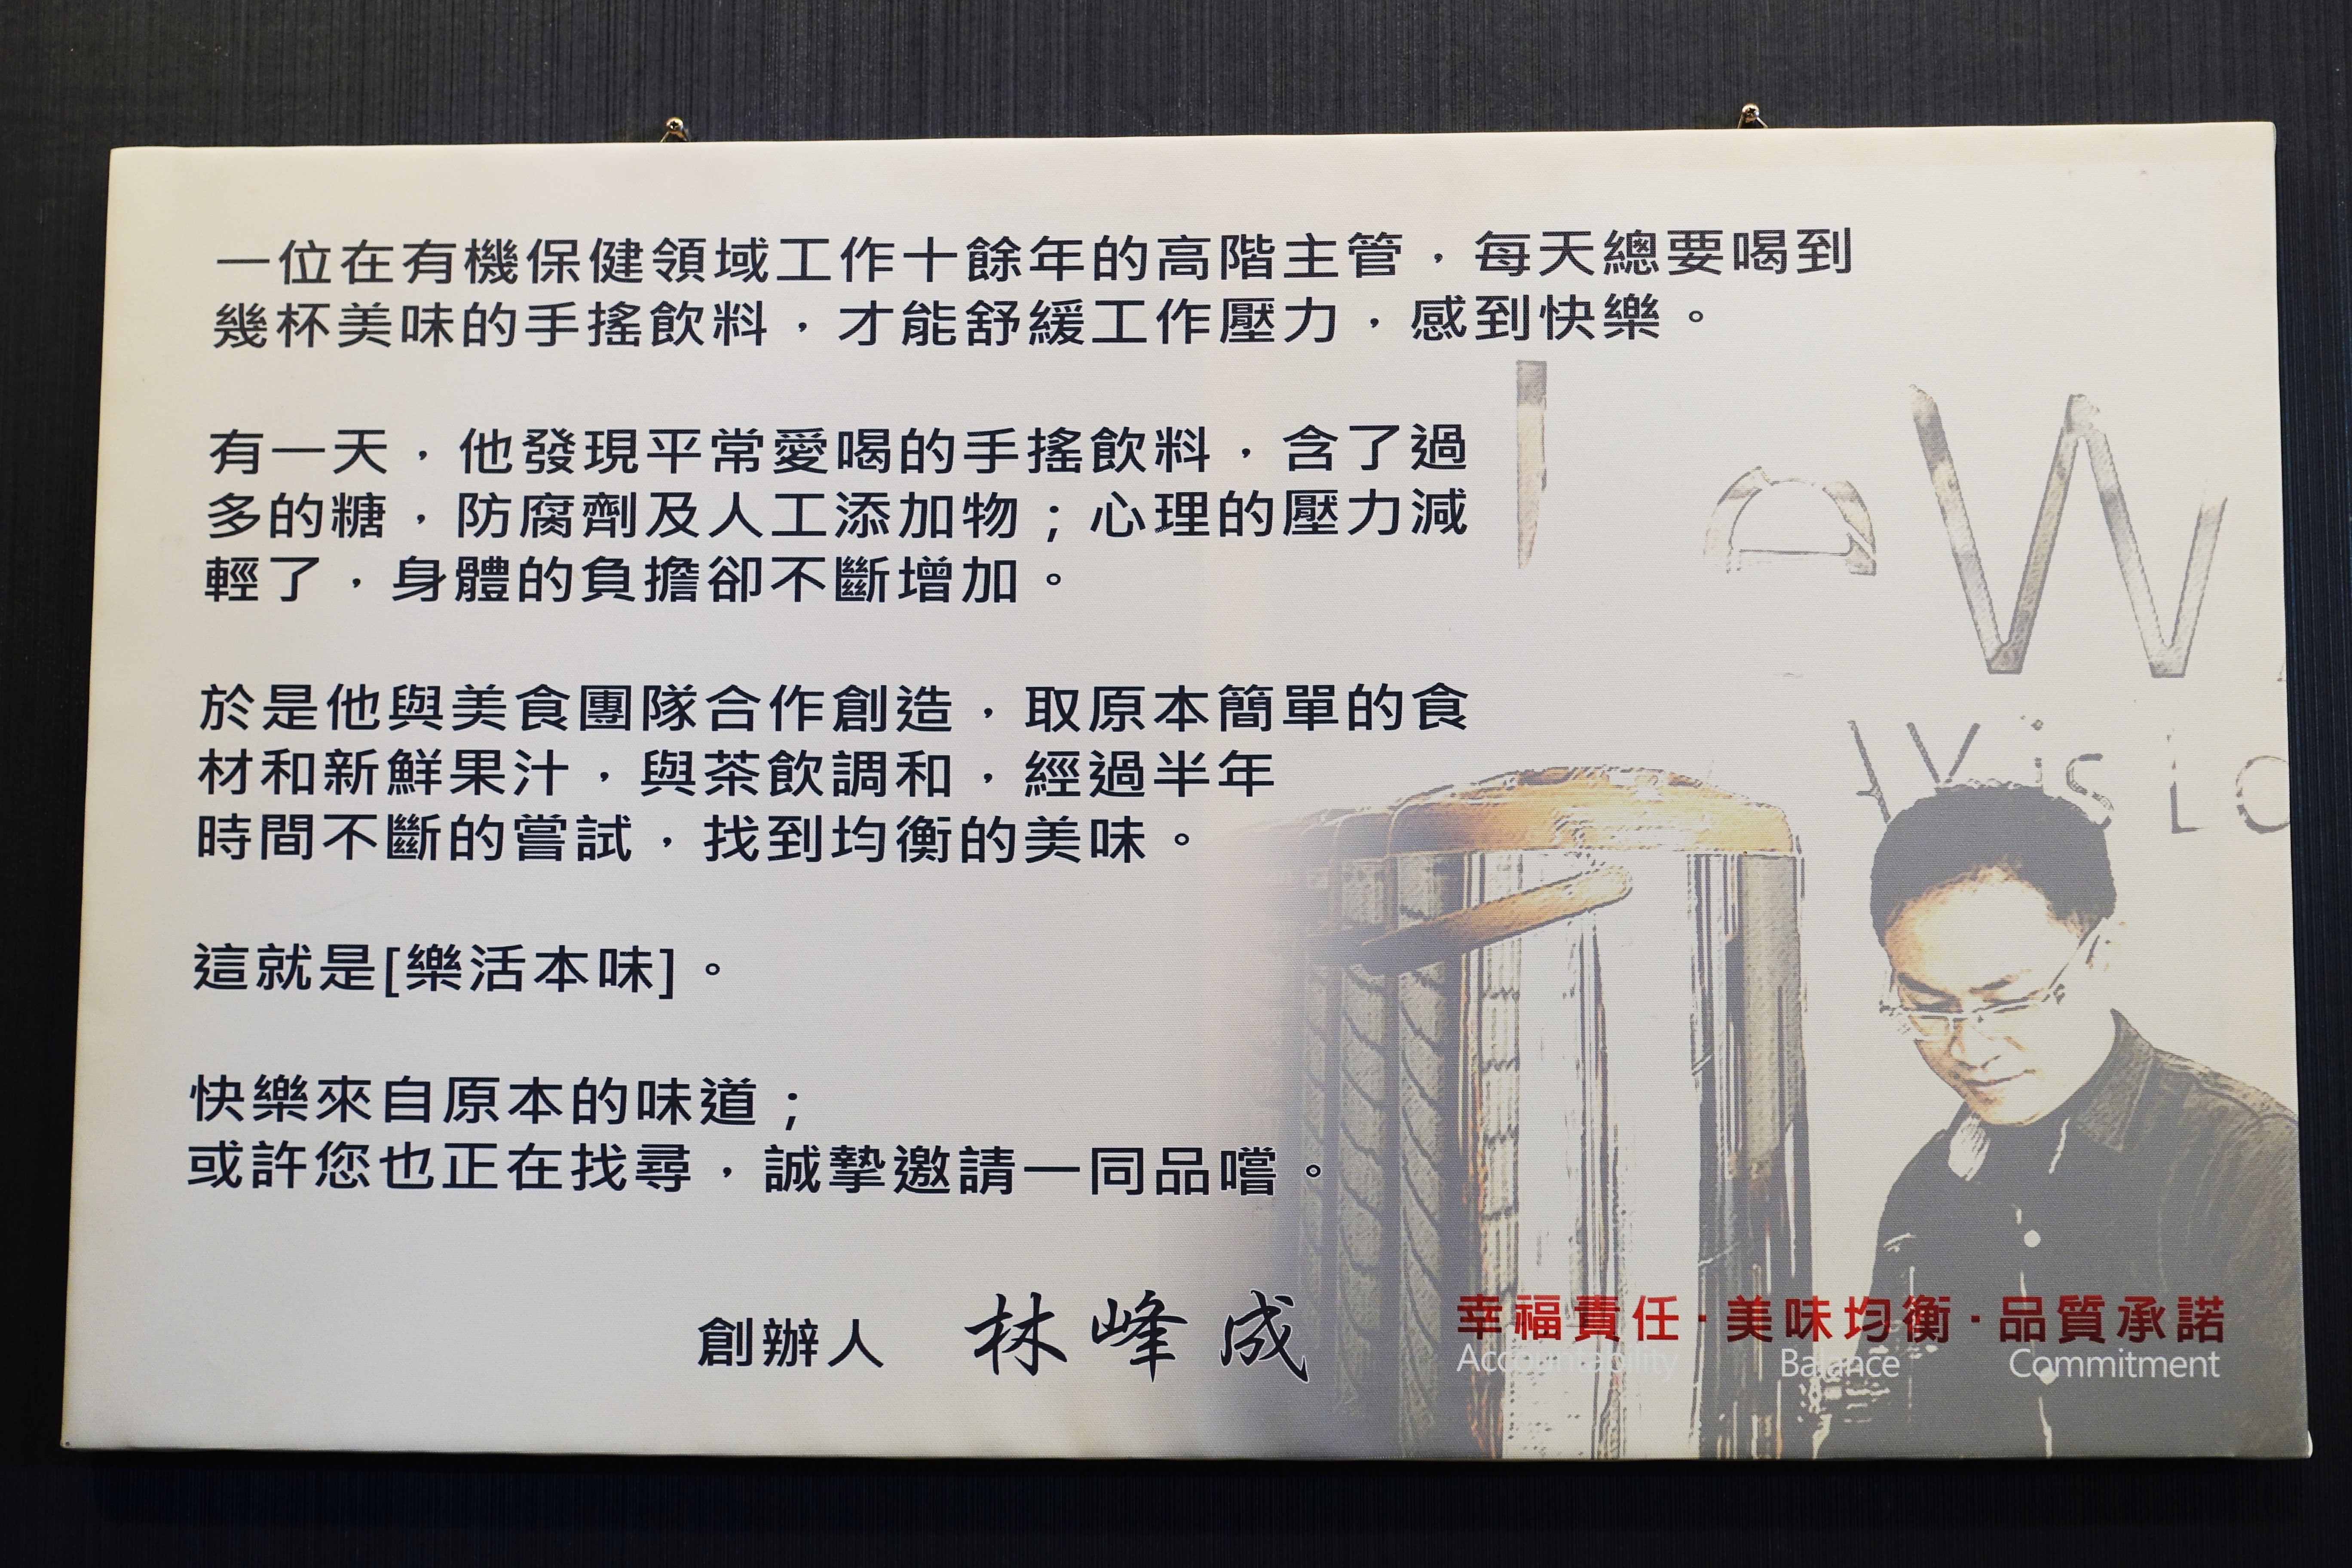 一位在有機保健領域工作十餘年的高階主管，每天總要喝到
幾杯美味的手搖飲料，才能舒緩工作壓力，感到快樂。
有一天，他發現平常愛喝的手搖飲料，含了過
多的糖，防腐劑及人工添加物；心理的壓力減
輕了，身體的負擔卻不斷增加。
於是他與美食團隊合作創造，取原本簡單的食
材和新鮮果汁，與茶飲調和，經過半年
時間不斷的嘗試，找到均衡的美味。
這就是[樂活本味]。
快樂來自原本的味道；
或許您也正在找尋，誠摯邀請一同品嚐。
創辦人 林峰成
幸福責任·美味均衡·品質承諾
Accountability Balance Commitment